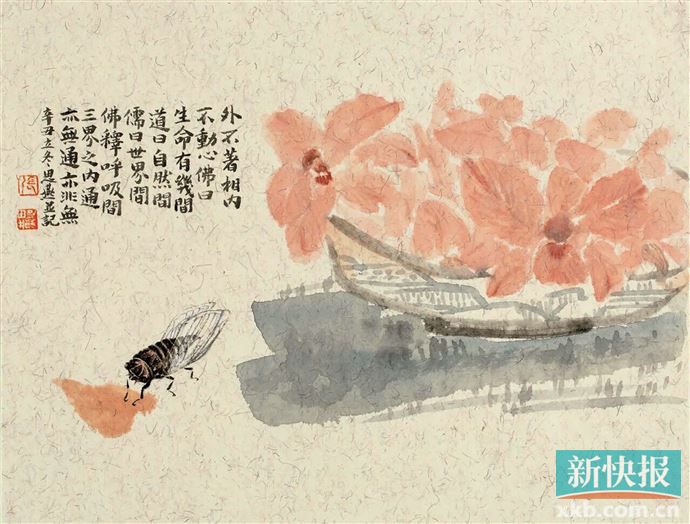 外不著相内
不動心佛曰
生命有幾間
道曰自然間
儒曰世界間
佛釋呼吸間
三界之内通
亦無通亦非無
辛丑立冬思燕並記
新快报
xkb.com.cn